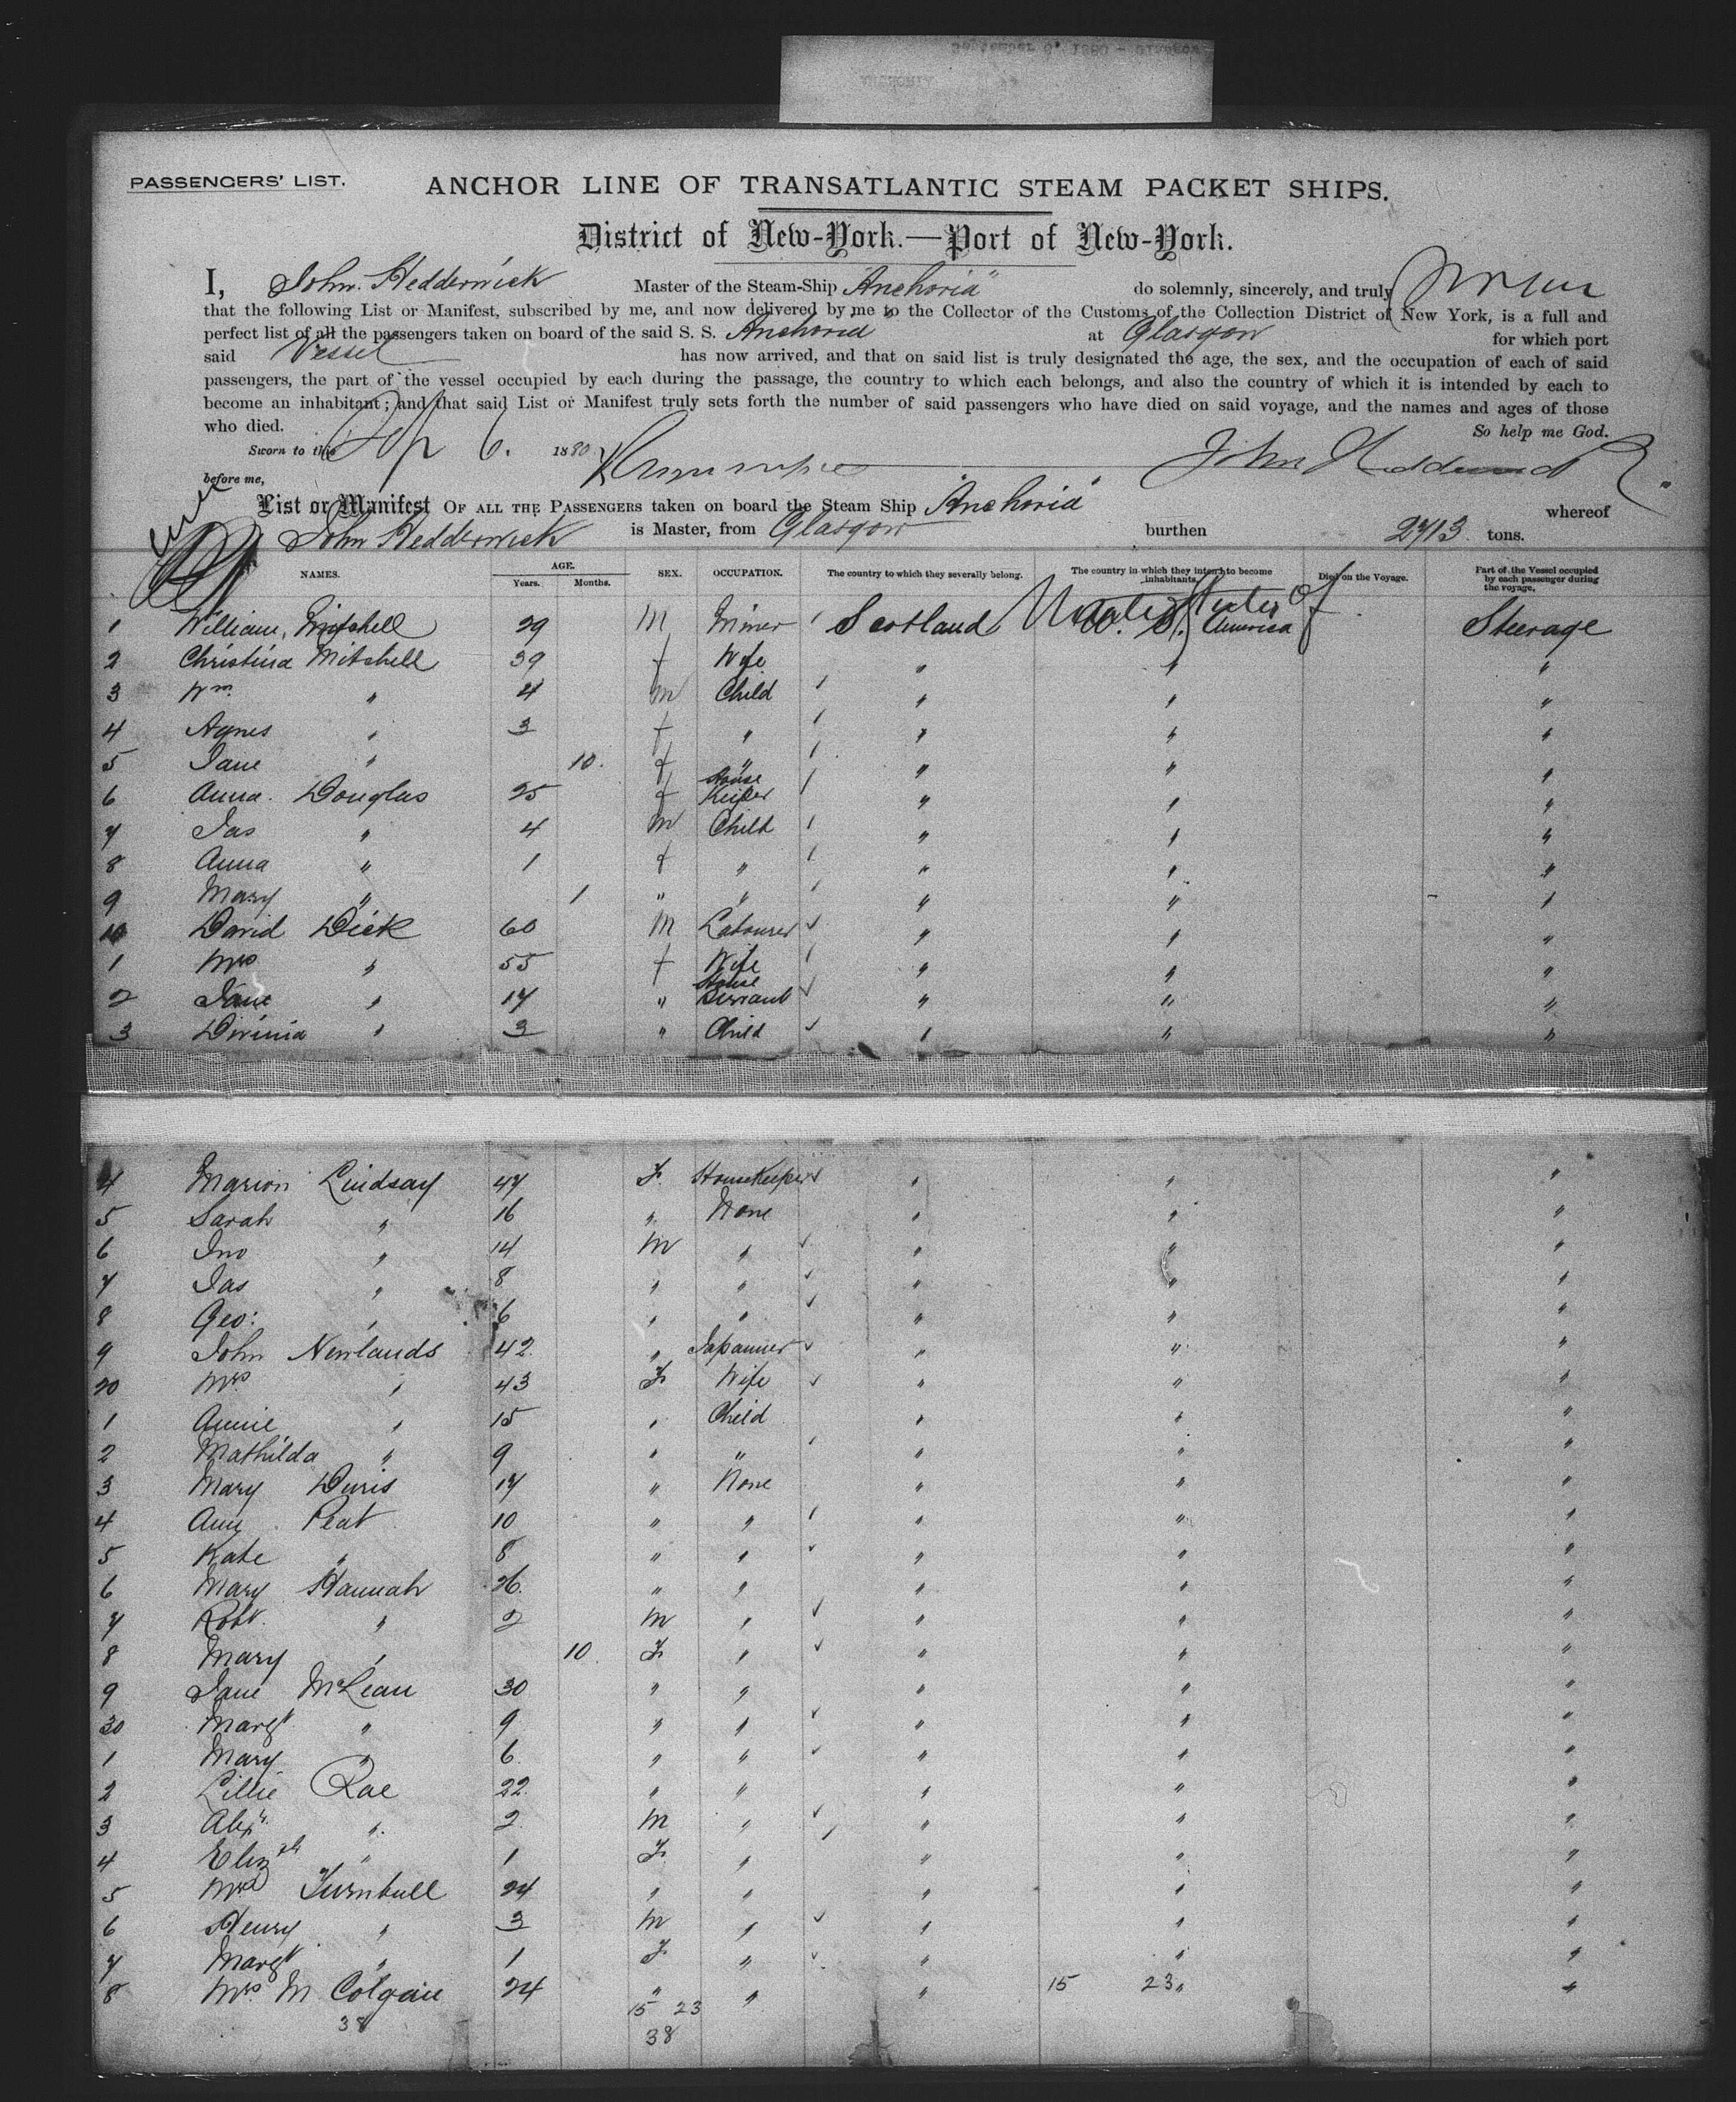 PASSENGERS' LIST.
ANCHOR LINE OF TRANSATLANTIC STEAM PACKET SHIPS.
District of New-York.—Port of New-York.
I, John Hedderwick Master of the Steam-Ship "Anchoria" do solemnly, sincerely, and truly
that the following List or Manifest, subscribed by me, and now delivered by me to the Collector of the Customs of the Collection District of New York, is a full and
perfect list of all the passengers taken on board of the said S. S. "Anchoria" at Glasgow for which port
said Vessel has now arrived, and that on said list is truly designated the age, the sex, and the occupation of each of said
passengers, the part of the vessel occupied by each during the passage, the country to which each belongs, and also the country of which it is intended by each to
become an inhabitant; and that said List or Manifest truly sets forth the number of said passengers who have died on said voyage, and the names and ages of those
who died. So help me God.
Sworn to this Sep 6. 1880 John Hedderwick
before me,
List or Manifest OF ALL THE PASSENGERS taken on board the Steam Ship "Anchoria" whereof
John Hedderwick is Master, from Glasgow burthen 2713 tons.
NAMES. AGE. Years. Months. SEX. OCCUPATION. The country to which they severally belong. The country in which they intend to become inhabitants. Died on the Voyage. Part of the Vessel occupied by each passenger during the voyage.
1 William Mitchell 29 M Miner Scotland United States of America Steerage
2 Christina Mitchell 39 f Wife " " "
3 Wm. " 4 m Child " " "
4 Agnes " 3 f " " " "
5 Jane " 10. f " " " "
6 Anna. Douglas 25 f House Keeper " " "
7 Jas " 4 m Child " " "
8 Anna " 1 f " " " "
9 Mary " 1 " " " " "
10 David Dick 60 M Labourer " " "
1 Mrs " 55 f Wife " " "
2 Jane " 17 " House Servant " " "
3 " 3 " Child " " "
4 Marion Lindsay 47 F. Housekeeper " " "
5 Sarah " 16 " None " " "
6 Jno " 14 M " " " "
7 Jas " 8 " " " " "
8 Geo: " 6 " " " " "
9 John Newlands 42. " Japanner " " "
20 Mrs " 43 F Wife " " "
1 Annie " 15 " Child " " "
2 Mathilda " 9 " " " " "
3 Mary 17 " None " " "
4 Ann Peat 10 " " " " "
5 Kate " 8 " " " " "
6 Mary Hannah 26. " " " " "
7 Robt. " 2 M " " " "
8 Mary " 10. F " " " "
9 Jane McLean 30 " " " " "
30 Margt " 9 " " " " "
1 Mary " 6 " " " " "
2 Lillie Rae 22. " " " " "
3 Alexr. " 2 M " " " "
4 Elizth " 1 F " " " "
5 Mrs Turnbull 24 " " " " "
6 Henry " 3 M " " " "
7 Margt " 1 F " " " "
8 Mrs M Colgan 24 " " " 15 23 " "
38 15 23
38